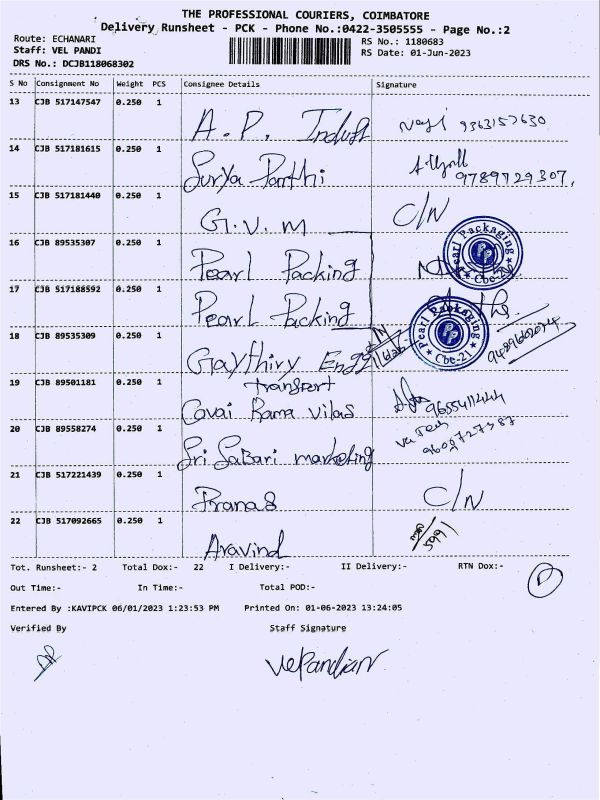 THE PROFESSIONAL COURIERS, COIMBATORE
Delivery Runsheet - PCK - Phone No.:0422-3505555 - Page No.:2
Route: ECHANARI RS No.: 1180683
Staff: VEL PANDI RS Date: 01-Jun-2023
DRS No.: DCJB118068302
S No Consignment No Weight PCS Consignee Details Signature
13 CJB 517147547 0.250 1 A.P. Indust 9363157630
14 CJB 517181615 0.250 1 Surya Panthi 9789729307,
15 CJB 517181440 0.250 1 G.V.M C/N
16 CJB 89535307 0.250 1 Pearl Packing Pearl Packaging PP Cbe-21
17 CJB 517188592 0.250 1 Pearl Packing Pearl Packaging PP Cbe-21
18 CJB 89535309 0.250 1 Gaythiry Engg
19 CJB 89501181 0.250 1 transport
Covai Rama vilas 9655411444
20 CJB 89558274 0.250 1 Sri Sabari marketing
21 CJB 517221439 0.250 1 Pranas C/N
22 CJB 517092665 0.250 1 Aravind
Tot. Runsheet:- 2 Total Dox:- 22 I Delivery:- II Delivery:- RTN Dox:-
Out Time:- In Time:- Total POD:-
Entered By :KAVIPCK 06/01/2023 1:23:53 PM Printed On: 01-06-2023 13:24:05
Verified By Staff Signature
VelPandian